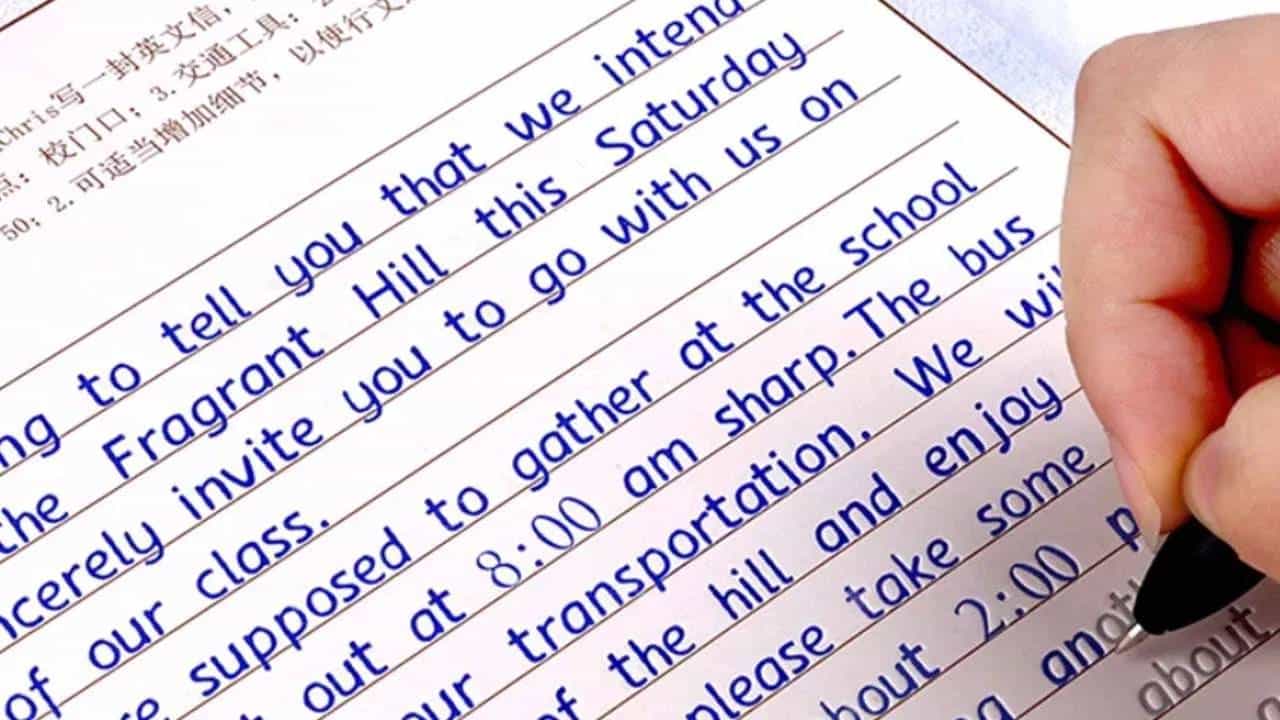 Chris写一封英文信，
点：校门口；3.交通工具：
50；2.可适当增加细节，以使行文
to tell you that we intend
the Fragrant Hill this Saturday
invite you to go with us on
of our class.
supposed to gather at the school
out at 8:00 am sharp. The bus
transportation. We
of the hill and enjoy
please take some
2:00
about